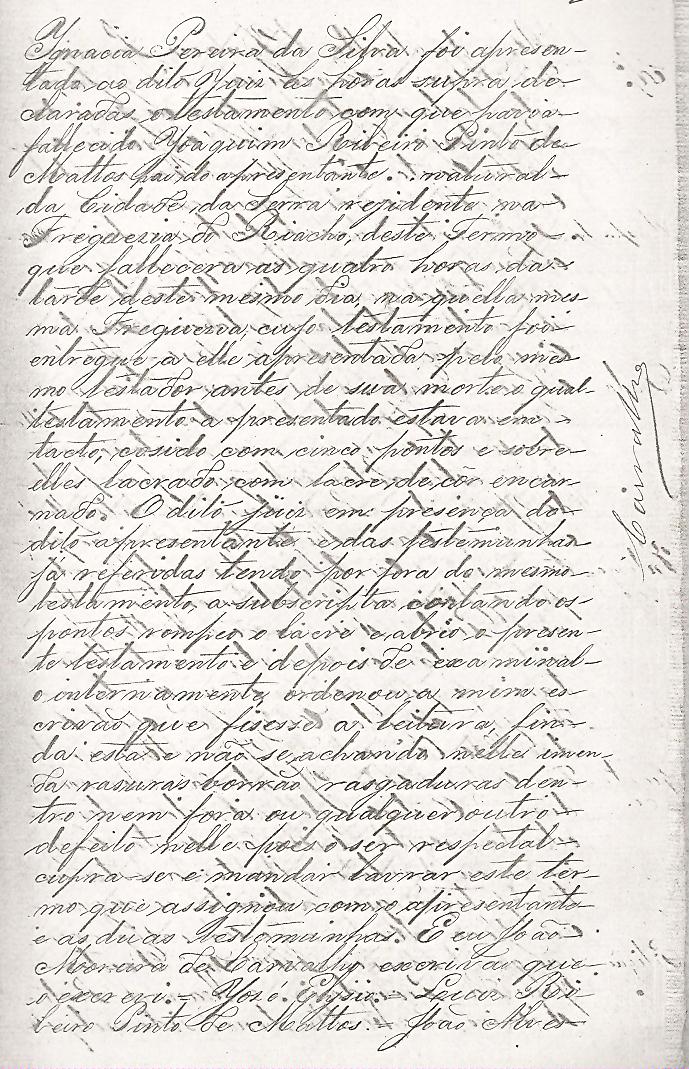 Ignacia Pereira da Silva foi apresen-
tado ao dito Juiz as horas supra de-
claradas o testamento com que havia
fallecido Joaquim Ribeiro Pinto de
Mattos pai do apresentante. natural
da Cidade da Serra rezidente na
Freguezia do Riacho, deste Termo
que fallecera as quatro horas da
tarde deste mesmo dia, na quella mes-
ma Freguezia, cujo testamento foi
entregue a elle apresentada pelo mes-
mo testador antes de sua morte o qual
testamento a presentado estava em
tacto, cosido com cinco pontos e sobre
elles lacrado com lacre de côr encar-
nado. O dito juiz em presença do
dito apresentante e das testemunhas
já referidas tendo por fora do mesmo
testamento, a subscripta contando os
pontos rompeo o lacre e abrio o presen-
te testamento e depois de examinal-
o internamente, ordenou a mim es-
crivão que fisesse a leitura, fin-
da esta e não se achando nelle imen-
da rasuras borrão rasgaduras den-
tro nem fora ou qualquer outro
defeito nelle pois o ser respectal
cupra-se e mandar lavrar este ter-
mo que assignou com o apresentante
e as duas testemunhas. E eu João
de Carvalho escrivão que
o escrevi. = José = Ri-
beiro Pinto de Mattos. = João Alves
Carvalho